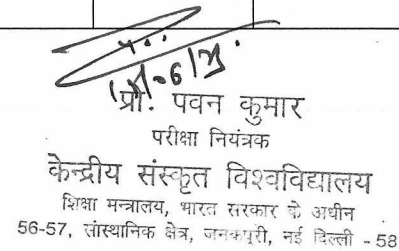 प्रो. पवन कुमार
परीक्षा नियंत्रक
केन्द्रीय संस्कृत विश्वविद्यालय
शिक्षा मन्त्रालय, भारत सरकार के अधीन
56-57, सांस्थानिक क्षेत्र, जनकपुरी, नई दिल्ली - 58